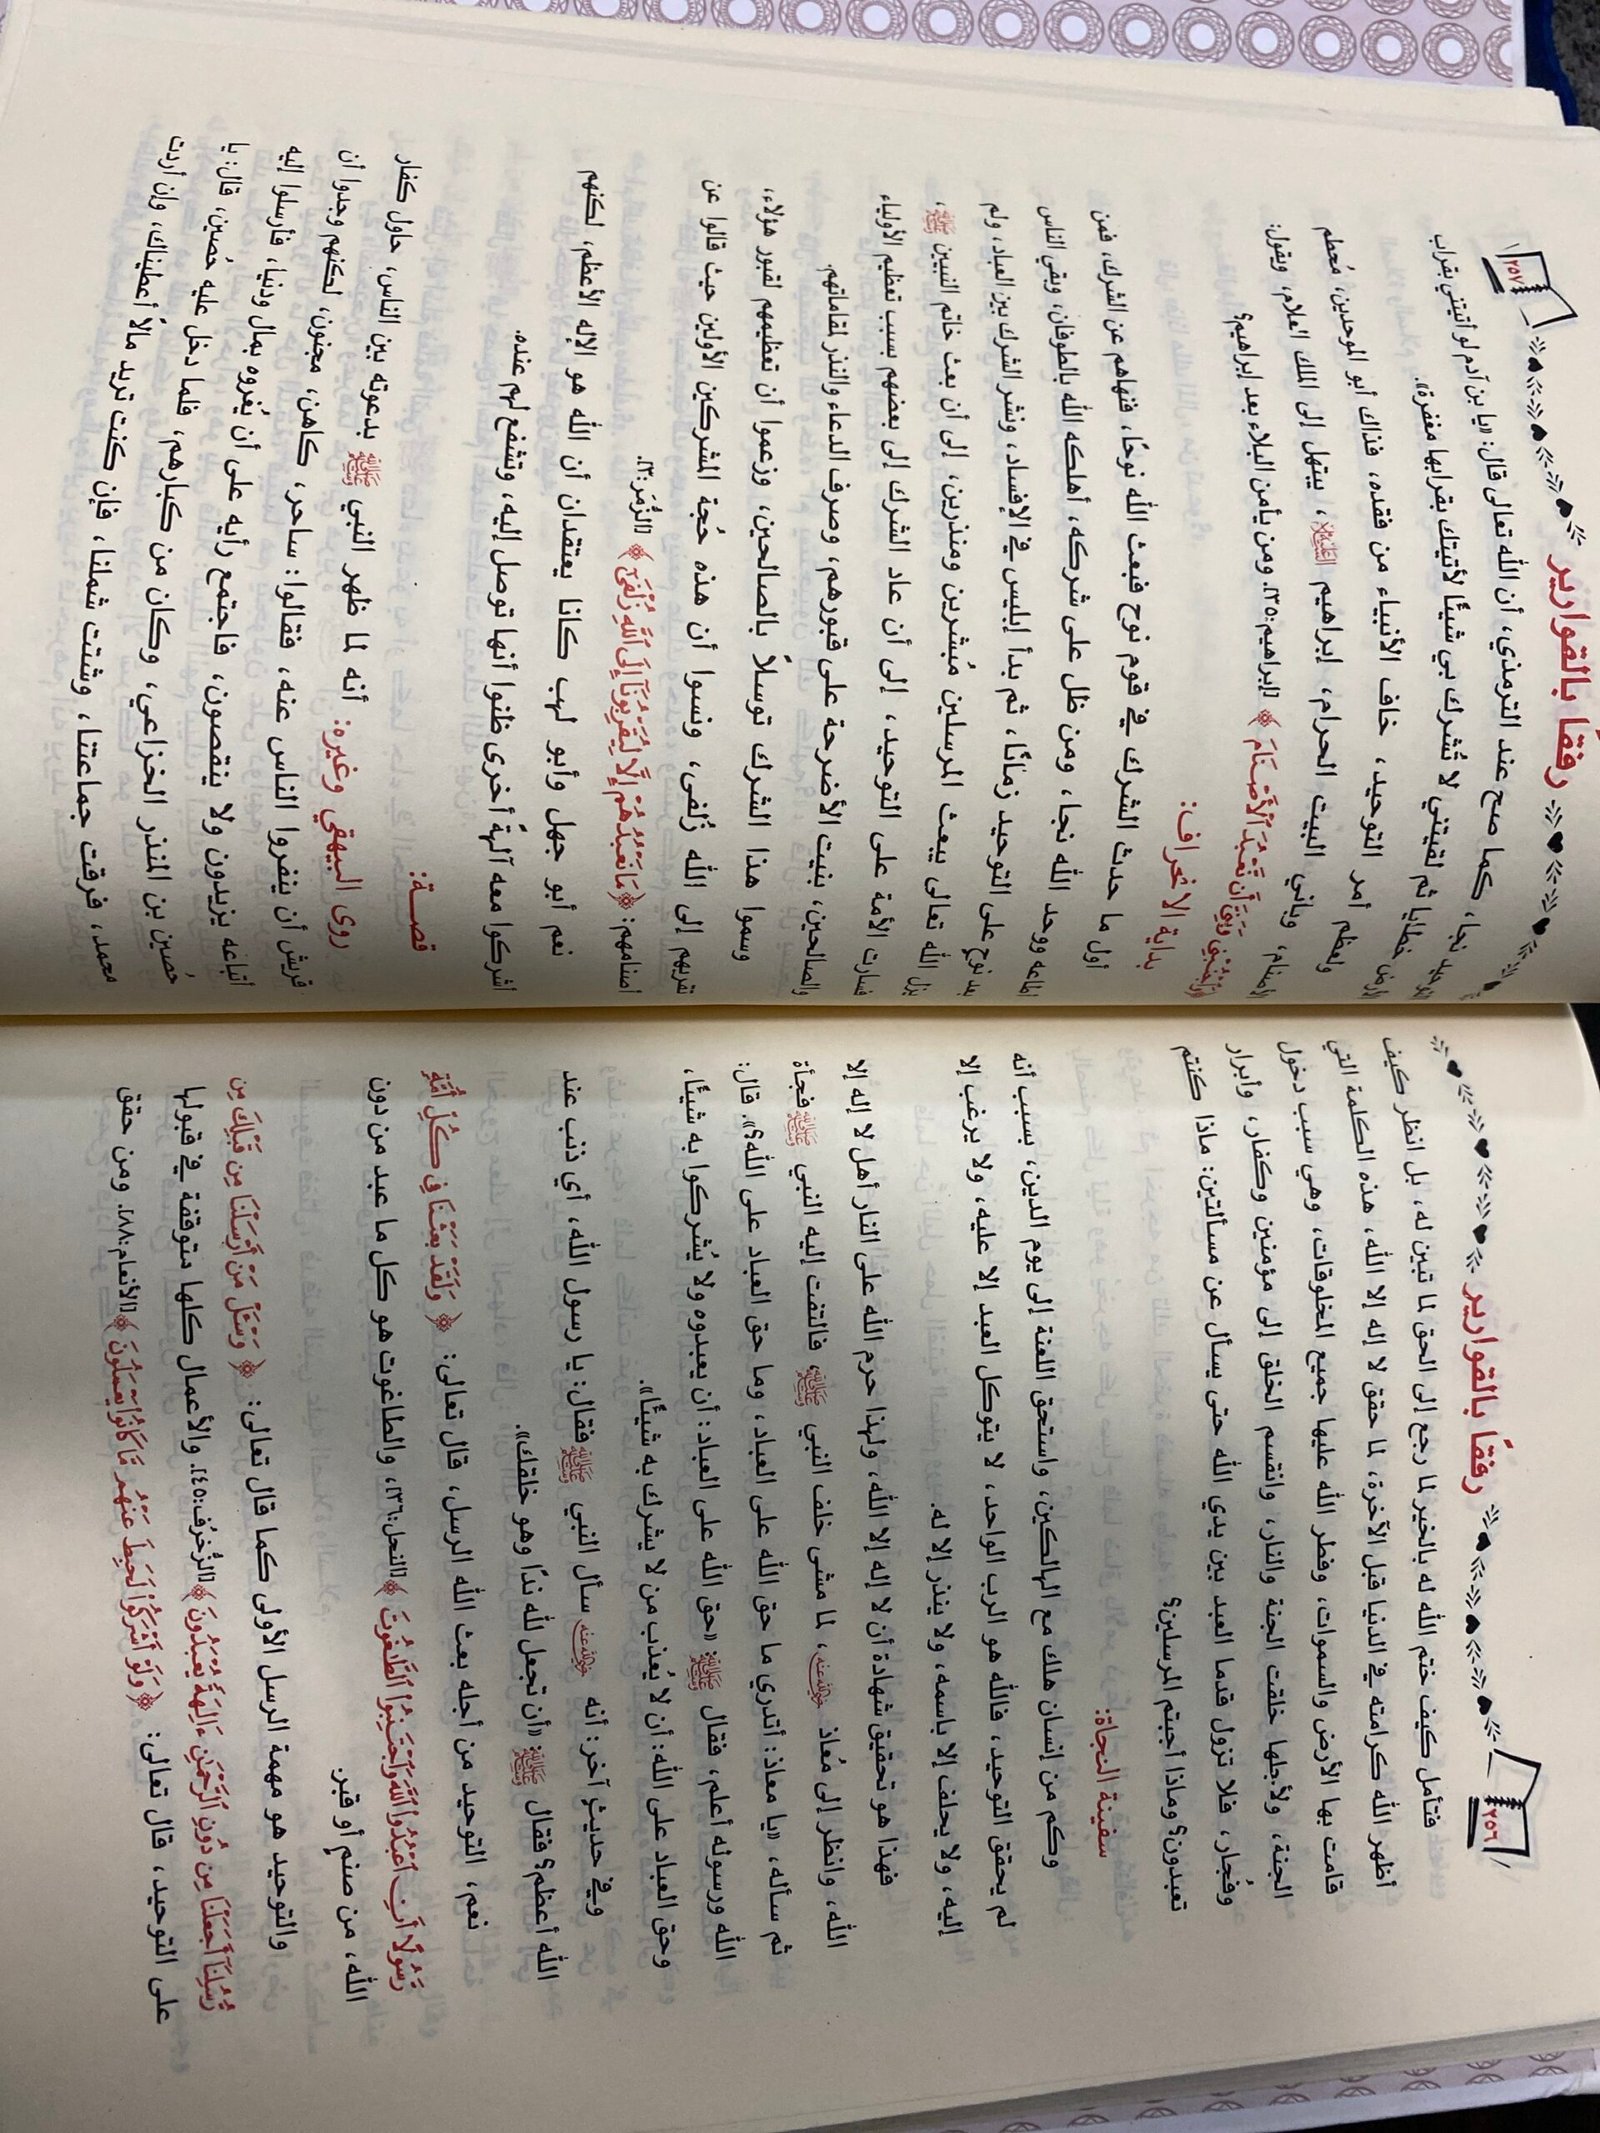 ٢٥٦
رفقًا بالقوارير
فتأمل كيف ختم الله له بالخير لما رجع إلى الحق لما تبين له، بل انظر كيف
أظهر الله كرامته في الدنيا قبل الآخرة، لما حقق لا إله إلا الله، هذه الكلمة التي
قامت بها الأرض والسموات، وفطر الله عليها جميع المخلوقات، وهي سبب دخول
الجنة، ولأجلها خلقت الجنة والنار، وانقسم الخلق إلى مؤمنين وكفار، وأبرار
وفُجار، فلا تزول قدما العبد بين يدي الله حتى يسأل عن مسألتين: ماذا كنتم
تعبدون؟ وماذا أجبتم المرسلين؟
سفينة النجاة:
وكم من إنسان هلك مع الهالكين، واستحق اللعنة إلى يوم الدين، بسبب أنه
لم يحقق التوحيد، فالله هو الرب الواحد، لا يتوكل العبد إلا عليه، ولا يرغب إلا
إليه، ولا يحلف إلا باسمه، ولا ينذر إلا له.
فهذا هو تحقيق شهادة أن لا إله إلا الله، ولهذا حرم الله على النار أهل لا إله إلا
الله، وانظر إلى مُعاذ رضي الله عنه، لما مشى خلف النبي ﷺ، فالتفت إليه النبي ﷺ فجأة
ثم سأله، «يا معاذ: أتدري ما حق الله على العباد، وما حق العباد على الله؟». قال:
الله ورسوله أعلم، فقال ﷺ: «حق الله على العباد: أن يعبدوه ولا يُشركوا به شيئًا،
وحق العباد على الله: أن لا يُعذب من لا يشرك به شيئًا».
وفي حديثٍ آخر: أنه رضي الله عنه سأل النبي ﷺ فقال: يا رسول الله، أي ذنب عند
الله أعظم؟ فقال ﷺ: «أن تجعل لله ندًا وهو خلقك».
نعم، التوحيد من أجله بعث الله الرسل، قال تعالى: ﴿وَلَقَدْ بَعَثْنَا فِي كُلِّ أُمَّةٍ
رَّسُولًا أَنِ اعْبُدُوا اللَّهَ وَاجْتَنِبُوا الطَّاغُوتَ﴾ [النحل:٣٦]، والطاغوت هو كل ما عبد من دون
الله، من صنمٍ أو قبر.
والتوحيد هو مهمة الرسل الأولى كما قال تعالى: ﴿وَسْئَلْ مَنْ أَرْسَلْنَا مِن قَبْلِكَ مِن
رُّسُلِنَا أَجَعَلْنَا مِن دُونِ الرَّحْمَٰنِ ءَالِهَةً يُعْبَدُونَ﴾ [الزُّخرُف:٤٥]. والأعمال كلها متوقفة في قبولها
على التوحيد، قال تعالى: ﴿وَلَوْ أَشْرَكُوا لَحَبِطَ عَنْهُم مَّا كَانُوا يَعْمَلُونَ﴾ [الأنعام:٨٨]. ومن حقق
رفقًا بالقوارير
٢٥٧
التوحيد نجا، كما صح عند الترمذي، أن الله تعالى قال: «يا بن آدم لو أتيتني بقراب
الأرض خطايا ثم لقيتني لا تُشرك بي شيئًا لأتيتك بقرابها مغفرة».
ولعظم أمر التوحيد، خاف الأنبياء من فقده، فذاك أبو الموحدين، مُحطم
الأصنام، وباني البيت الحرام، إبراهيم عليه السلام، يبتهل إلى الملك العلام، ويقول:
﴿وَاجْنُبْنِي وَبَنِيَّ أَن نَّعْبُدَ الْأَصْنَامَ﴾ [إبراهيم:٣٥]. ومن يأمن البلاء بعد إبراهيم؟
بداية الانحراف:
أول ما حدث الشرك في قوم نوح فبعث الله نوحًا، فنهاهم عن الشرك، فمن
أطاعه ووحد الله نجا، ومن ظل على شركه، أهلكه الله بالطوفان، وبقي الناس
بعد نوحٍ على التوحيد زمانًا، ثم بدأ إبليس في الإفساد، ونشر الشرك بين العباد، ولم
يزل الله تعالى يبعث المرسلين مُبشرين ومنذرين، إلى أن بعث خاتم النبيين ﷺ،
فسارت الأمة على التوحيد، إلى أن عاد الشرك إلى بعضهم بسبب تعظيم الأولياء
والصالحين، بنيت الأضرحة على قبورهم، وصرف الدعاء والنذر لمقاماتهم.
وسموا هذا الشرك توسلاً بالصالحين، وزعموا أن تعظيمهم لقبور هؤلاء،
تقربهم إلى الله زُلفى، ونسوا أن هذه حُجة المشركين الأولين حيث قالوا عن
أصنامهم: ﴿مَا نَعْبُدُهُمْ إِلَّا لِيُقَرِّبُونَا إِلَى اللَّهِ زُلْفَىٰ﴾ [الزُّمَر:٣].
نعم أبو جهل وأبو لهب كانا يعتقدان أن الله هو الإله الأعظم، لكنهم
أشركوا معه آلهةً أخرى ظنوا أنها توصل إليه، وتشفع لهم عنده.
قصــة:
روى البيهقي وغيره: أنه لما ظهر النبي ﷺ بدعوته بين الناس، حاول كفار
قريش أن ينفروا الناس عنه، فقالوا: ساحر، كاهن، مجنون، لكنهم وجدوا أن
أتباعه يزيدون ولا ينقصون، فاجتمع رأيه على أن يُغروه بمال ودنيا، فأرسلوا إليه
حُصين بن المنذر الخزاعي، وكان من كبارهم، فلما دخل عليه حُصين، قال: يا
محمد، فرقت جماعتنا، وشتت شملنا، فإن كنت تريد مالاً أعطيناك، وإن أردت